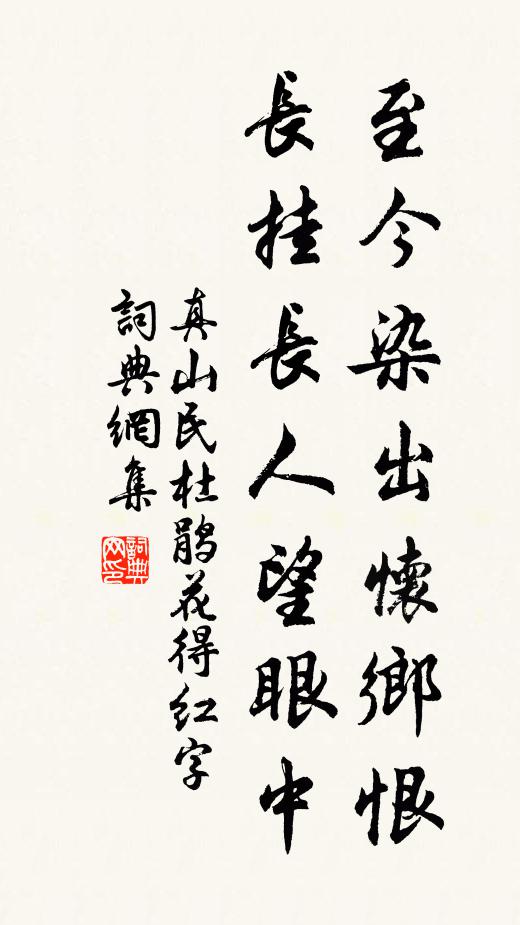 至今染出懷鄉恨
長挂長人望眼中
真山民杜鵑花得紅字
詞典網集
詞典网印